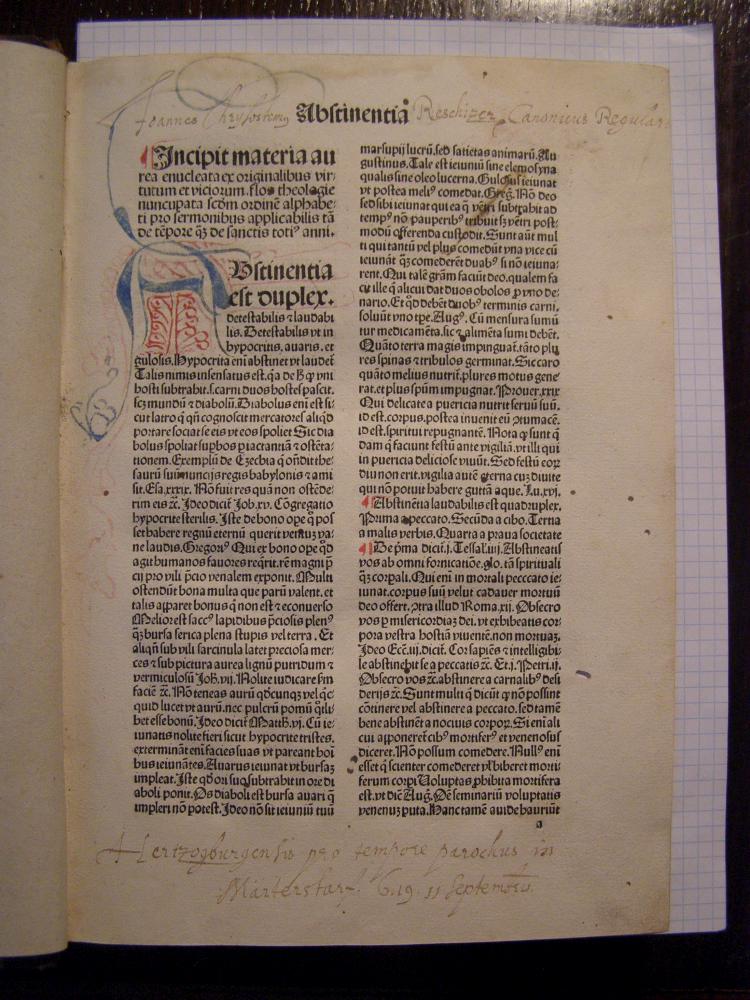 Joannes Chrysostomus Abstinentia Reschizer Canonicus Regularis
Incipit materia au
rea enucleata ex originalibus vir⸗
tutum et viciorum. flos theologie
nuncupata scdm ordinē alphabe⸗
ti pro sermonibus applicabilis tā
de tēpore qȝ de sanctis toti⁹ anni.
Abstinentia
est duplex.
detestabilis ⁊ laudabi
lis. Detestabilis vt in
hypocritis. auaris. et
gulosis. Hypocrita eni abstinet vt laudet̄
Talis nimis insensatus est. qa de
hosti subtrahit. s. carni duos hostes pascit.
scȝ mundū ⁊ diabolū. Diabolus eni est si⸗
cut latro q̄ qn̄ cognoscit mercatores aliqd
portare sociat se eis vt eos spoliet Sic dia
bolus spoliat supbos p iactantiā ⁊ ostēta⸗
tionem. Exemplū de Ezechia q ondit the⸗
saurū suū nuncijs regis babylonis ⁊ ami
sit. Esa. xxxix. Nō fuit res quā non ostēde⸗
rim eis ⁊c. Ideo dicit Job. xv. Cōgregatio
hypocrite sterilis. Iste de bono ope q pos
set habere regnū eternū querit ventuȝ va⸗
ne laudis. Gregori⁹ Qui ex bono ope qd
agit humanos fauores reqrit. rē magni p̄
cij pro vili p̄cio venalem exponit. Multi
ostendūt bona multa que parū valent. et
talis apparet bonus q non est ⁊ econuerso
Melior est sacc⁹ lapidibus p̄ciosis plen⁹
qȝ bursa serica plena stupis vel terra. Et
aliqn̄ sub vili sarcinula latet preciosa mer⸗
ces ⁊ sub pictura aurea lignū putridum ⁊
vermiculosū Joh. vij. Nolite iudicare s̄m
faciē ⁊c. Nō teneas aurū qdcunqȝ vel qc⸗
quid lucet vt aurū. nec pulcrū pomū qlii⸗
bet esse bonū. Ideo dicit Matth. vj. Cū ie⸗
iunatis nolite fieri sicut hypocrite tristes.
extermināt eni facies suas vt pareant hoi
bus ieiunātes. Auarus ieiunat vt bursaȝ
impleat. Iste qd ori suo subtrahit in ore di
aboli ponit. Os diaboli est bursa auari q
impleri nō potest. Ideo nō sit ieiuniū tuū
marsupij lucrū. sed satietas animarū. Au
gustinus. Tale est ieiuniū sine elemosyna
qualis sine oleo lucerna. Gulosus ieiunat
vt postea meli⁹ comedat. Greg. Nō deo
sed sibi ieiunat qui ea q̄ vētri subtrahit ad
temp⁹ nō pauperib⁹ tribuit sȝ vētri post⸗
modū offerenda custodit. Sunt aūt mul
ti qui tantū vel plus comedūt vna vice cū
ieiunāt qȝ comederēt duab⁹ si nō ieiuna⸗
rent. Qui talē gr̄am faciūt deo. qualem fa
cit ille q alicui dat duos obolos p vno de⸗
nario. Et qd debēt duob⁹ terminis carni.
soluūt vno tpe. Aug⁹. Cū mensura sumū
tur medicamēta. sic ⁊ alimēta sumi debēt.
Quāto terra magis impinguat̄. tāto plu
res spinas ⁊ tribulos germinat. Sic caro
quāto melius nutrit̄. plures motus gene⸗
rat. et plus spm̄ impugnat. Prouer. xxix
Qui delicate a puericia nutrit seruū suū.
id est. corpus. postea inueniet eū ꝯtumacē.
id est. spiritui repugnantē. Nota q sunt q
dam q faciunt festū ante vigiliā. vt illi qui
in puericia deliciose viuūt. Sed festū eoꝝ
diu non erit. vigilia aūt eterna cuȝ diuite
qui nō potuit habere guttā aque. Lu. xvj.
Abstinētia laudabilis est quadruplex.
Prima a peccato. Secūda a cibo. Tertia
a malis verbis. Quarta a praua societate
De p̄ma dicit. j. Tessal. iiij. Abstineatis
vos ab omni fornicatiōe. glo. tā spirituali
qȝ corpali. Qui eni in mortali pecccato ie⸗
iunat. corpus suū velut cadauer mortuū.
deo offert. ꝯtra illud Roma. xij. Obsecro
vos p misericordiaȝ dei. vt exhibeatis cor⸗
pora vestra hostiā viuentē. non mortuaȝ.
Ideo Ecc. iij. dicit. Cor sapiēs ⁊ intelligibi⸗
le abstinebit se a peccatis ⁊c. Et. j. Petri. ij.
Obsecro vos ⁊c. abstinere a carnalib⁹ desi
derijs ⁊c. Sunt multi q dicūt q non possint
cōtinere vel abstinere a peccato. sed tamē
bene abstinēt a nociuis corpoꝝ. Si eni ali
cui apponerēt cib⁹ mortifer⁹ et venenosus
diceret. Nō possum comedere. Null⁹ eni
esset q scienter comederet vl biberet morti⸗
ferum corpi Voluptas phibita mortifera
est. vt dic̄ Aug. Oē seminariū voluptatis
venenuȝ puta. Hanc tamē auide hauriūt
a
Hertzogburgensis pro tempore parochus in
Märterstorf. 6.19. 11 Septembris.